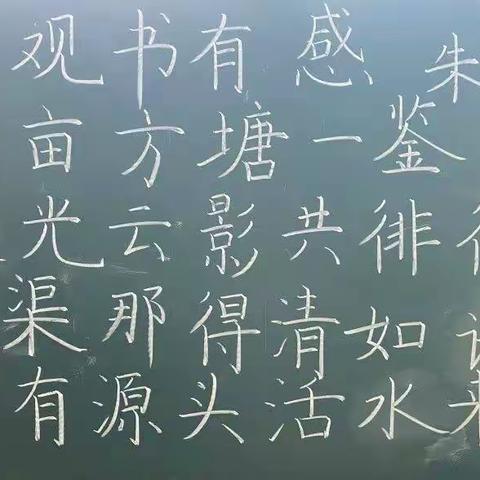 观书有感 朱
亩方塘一鉴
光云影共徘
渠那得清如
有源头活水来